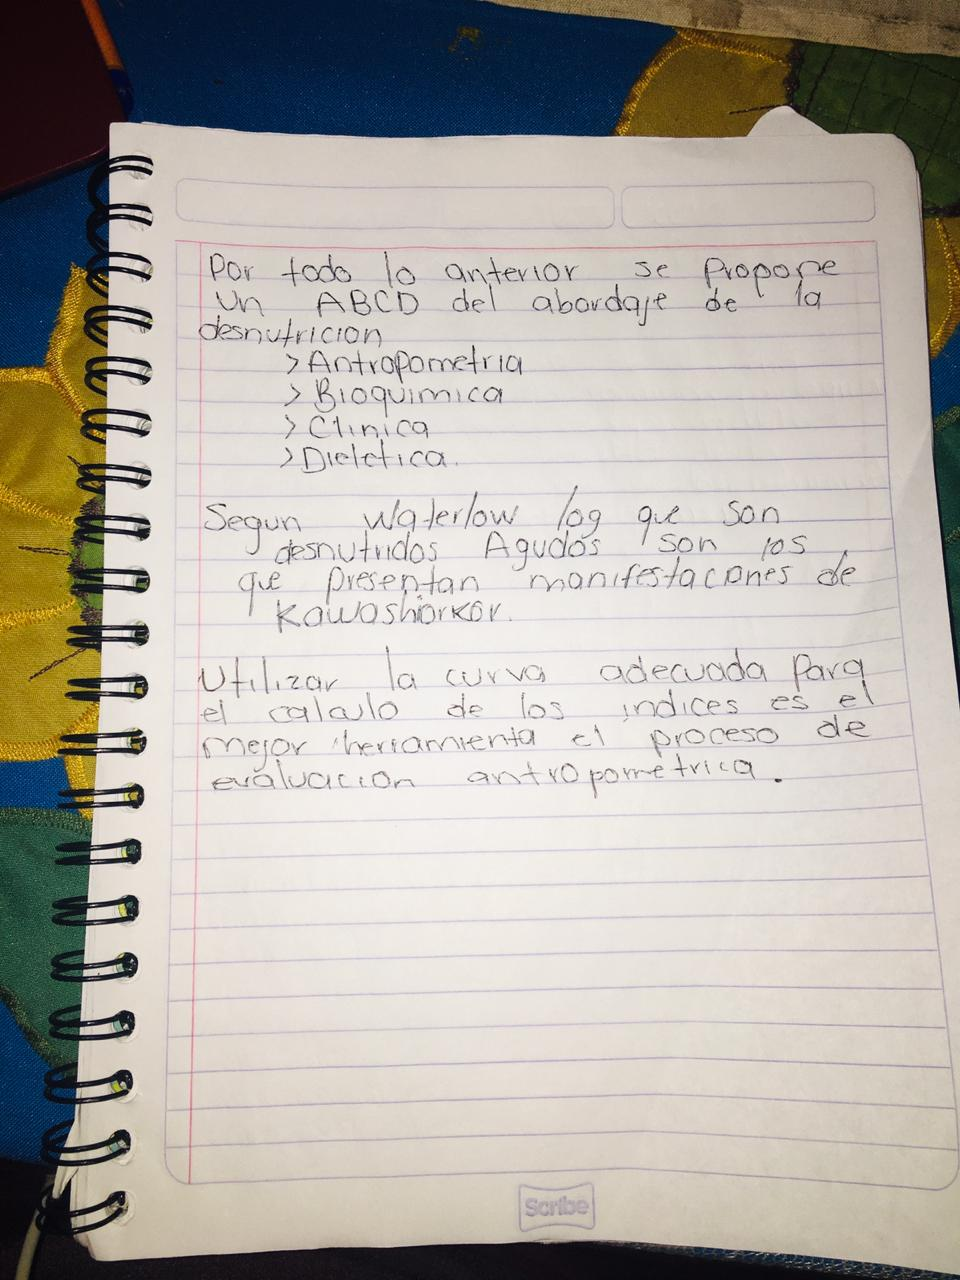 Por todo lo anterior se propone
un ABCD del abordaje de la
desnutricion
> Antropometria
> Bioquimica
> Clinica
> Dietetica.
Segun Waterlow log que son
desnutridos Agudos son los
que presentan manifestaciones de
Kawashiorkor.
Utilizar la curva adecuada para
el calculo de los indices es el
mejor herramienta el proceso de
evaluacion antropometrica.
Scribe